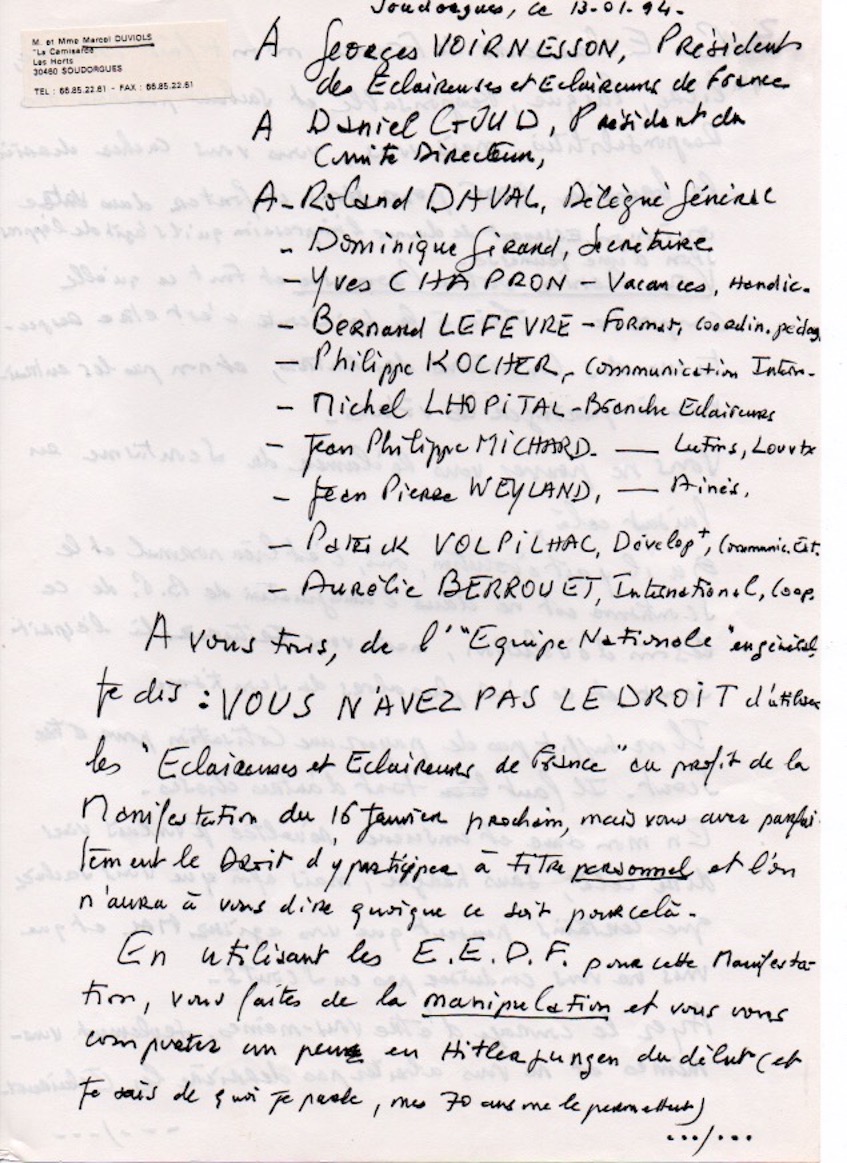 Soudorgues, ce 13-01-94-
M. et Mme Marcel DUVIOLS
"La Camisarde
Les Horts
30460 SOUDORGUES
TEL : 66.85.22.61 - FAX : 66.85.22.61
A Georges VOIRNESSON, Président
des Eclaireuses et Eclaireurs de France
A Daniel GUUD, Président du
Comité Directeur,
A - Roland DAVAL, Délégué Général
- Dominique Girard, Secrétaire
- Yves CHAPRON - Vacances, Handic.
- Bernard LEFEVRE - Format, Coordin. pédag
- Philippe KOCHER, Communication Intern-
- Michel LHOPITAL - Branche Eclaireurs
- Jean Philippe MICHARD. — Lutins, Louvtx
- Jean Pierre WEYLAND, — Ainés,
- Patrick VOLPILHAC, Dévelop+, Communic. Ext.
- Aurélie BERROUET, International, Coop.
A vous tous, de l'"Equipe Nationale" en général
Je dis : VOUS N'AVEZ PAS LE DROIT d'utiliser
les "Eclaireuses et Eclaireurs de France" au profit de la
Manifestation du 16 Janvier prochain, mais vous avez parfai
tement le Droit d'y participer à titre personnel et l'on
n'aura à vous dire quoique ce soit pour celà -
En utilisant les E.E.D.F. pour cette Manifesta-
tion, vous faites de la manipulation et vous vous
comportez un peu en Hitlerjungen du début (et
Je sais de quoi Je parle, mes 70 ans me le permettent)
.../...